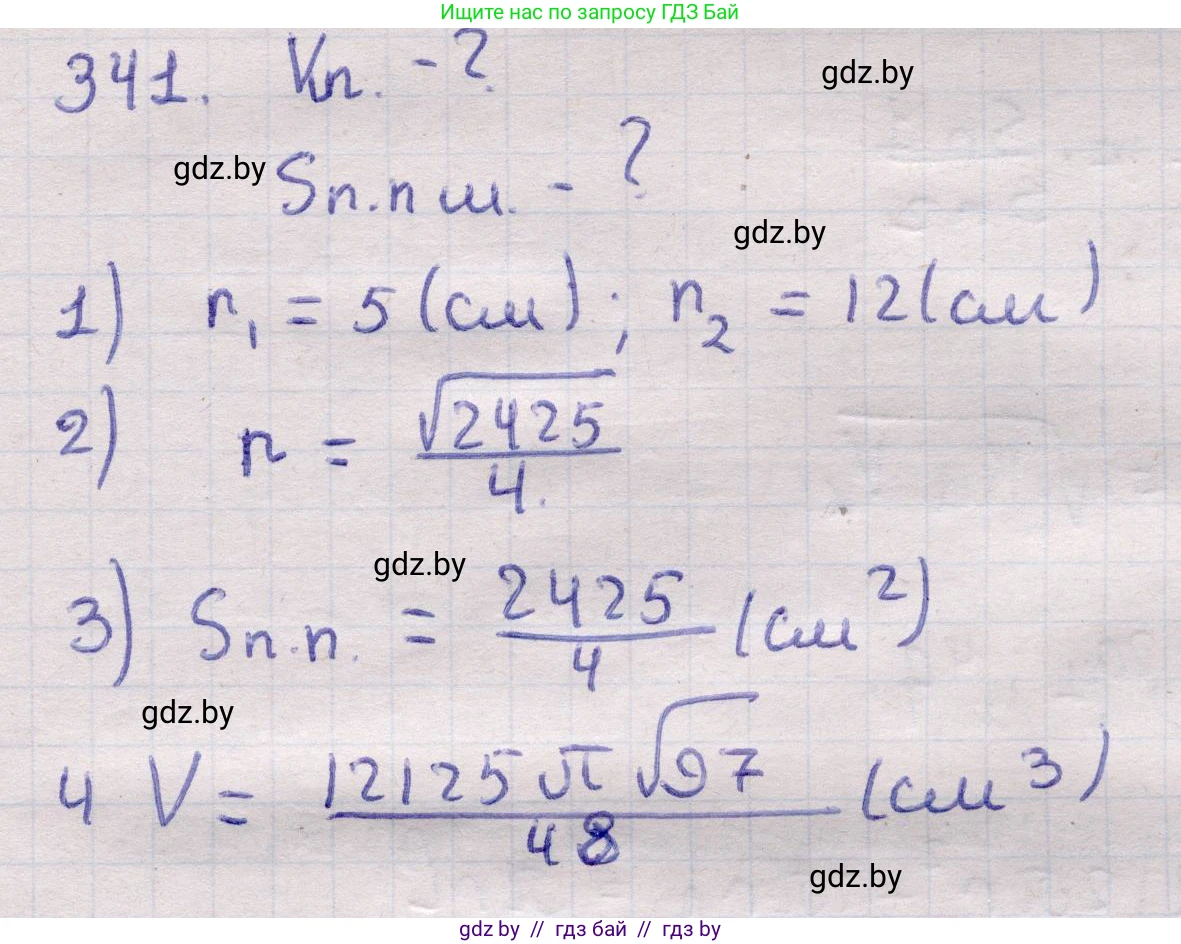 Ищите нас по запросу ГДЗ Бай
341. Vп. - ?
gdz.by
gdz.by Sп.п ш. - ?
gdz.by
1) r₁ = 5 (см) ; r₂ = 12 (см)
2) r = √2425 / 4.
gdz.by
3) Sп.п. = 2425 / 4 (см²)
gdz.by
4 V = 12125 π √97 / 48 (см³)
gdz.by
gdz by // гдз бай // гдз by